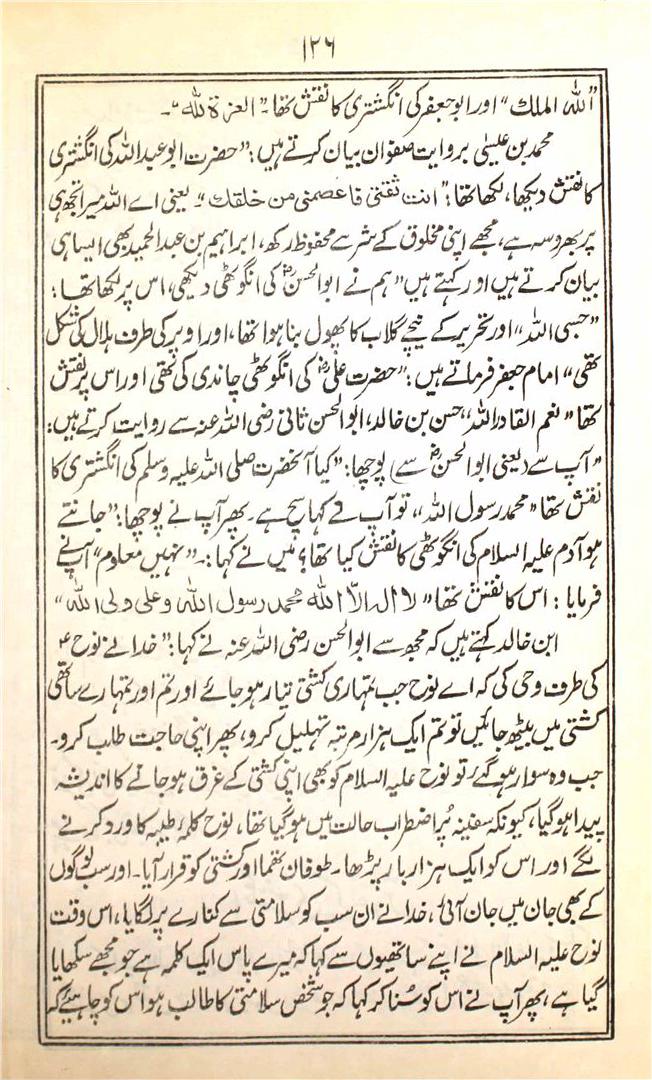 ۱۲۶
"اللہ الملک" اور ابو جعفر کی انگشتری کا نقش تھا۔ "العزۃ للہ"۔
محمد بن عیسیٰ بروایت صفوان بیان کرتے ہیں: "حضرت ابو عبداللہ کی انگشتری
کا نقش دیکھا، لکھا تھا: "انت ثقتی فاعصمنی من خلقك"۔ یعنی اے اللہ میرا تجھ ہی
پر بھروسہ ہے، مجھے اپنی مخلوق کے شر سے محفوظ رکھ، ابراہیم بن عبدالحمید بھی ایسا ہی
بیان کرتے ہیں اور کہتے ہیں "ہم نے ابوالحسنؓ کی انگوٹھی دیکھی، اس پر لکھا تھا:
"حسبی اللہ" اور تحریر کے نیچے گلاب کا پھول بنا ہوا تھا، اور اوپر کی طرف ہلال کی شکل
تھی" امام جعفر فرماتے ہیں: "حضرت علیؓ کی انگوٹھی چاندی کی تھی اور اس پر نقش
تھا "نعم القادر اللہ" حسن بن خالد، ابوالحسن ثانی رضی اللہ عنہ سے روایت کرتے ہیں:
"آپ سے (یعنی ابوالحسنؓ سے) پوچھا: "کیا آنحضرت صلی اللہ علیہ وسلم کی انگشتری کا
نقش تھا "محمد رسول اللہ"، تو آپ نے کہا سچ ہے۔ پھر آپ نے پوچھا: "جانتے
ہو آدم علیہ السلام کی انگوٹھی کا نقش کیا تھا؟ میں نے کہا:۔ "نہیں معلوم" آپ نے
فرمایا: اس کا نقش تھا "لا الہ الا اللہ محمد رسول اللہ وعلی ولی اللہ"
ابن خالد کہتے ہیں کہ مجھ سے ابوالحسن رضی اللہ عنہ نے کہا: "خدا نے نوحؑ
کی طرف وحی کی کہ اے نوح جب تمہاری کشتی تیار ہو جائے اور تم اور تمہارے ساتھی
کشتی میں بیٹھ جائیں تو تم ایک ہزار مرتبہ تہلیل کرو، پھر اپنی حاجت طلب کرو۔
جب وہ سوار ہو گئے تو نوح علیہ السلام کو بھی اپنی کشتی کے غرق ہو جانے کا اندیشہ
پیدا ہو گیا، کیونکہ سفینہ پُر اضطراب حالت میں ہو گیا تھا، نوح کلمۂ طیبہ کا ورد کرنے
لگے اور اس کو ایک ہزار بار پڑھا۔ طوفان تھما اور کشتی کو قرار آیا۔ اور سب لوگوں
کے بھی جان میں جان آئی، خدا نے ان سب کو سلامتی سے کنارے پر لگایا، اس وقت
نوح علیہ السلام نے اپنے ساتھیوں سے کہا کہ میرے پاس ایک کلمہ ہے جو مجھے سکھایا
گیا ہے، پھر آپ نے اس کو سُنا کر کہا کہ جو شخص سلامتی کا طالب ہو اس کو چاہیئے کہ